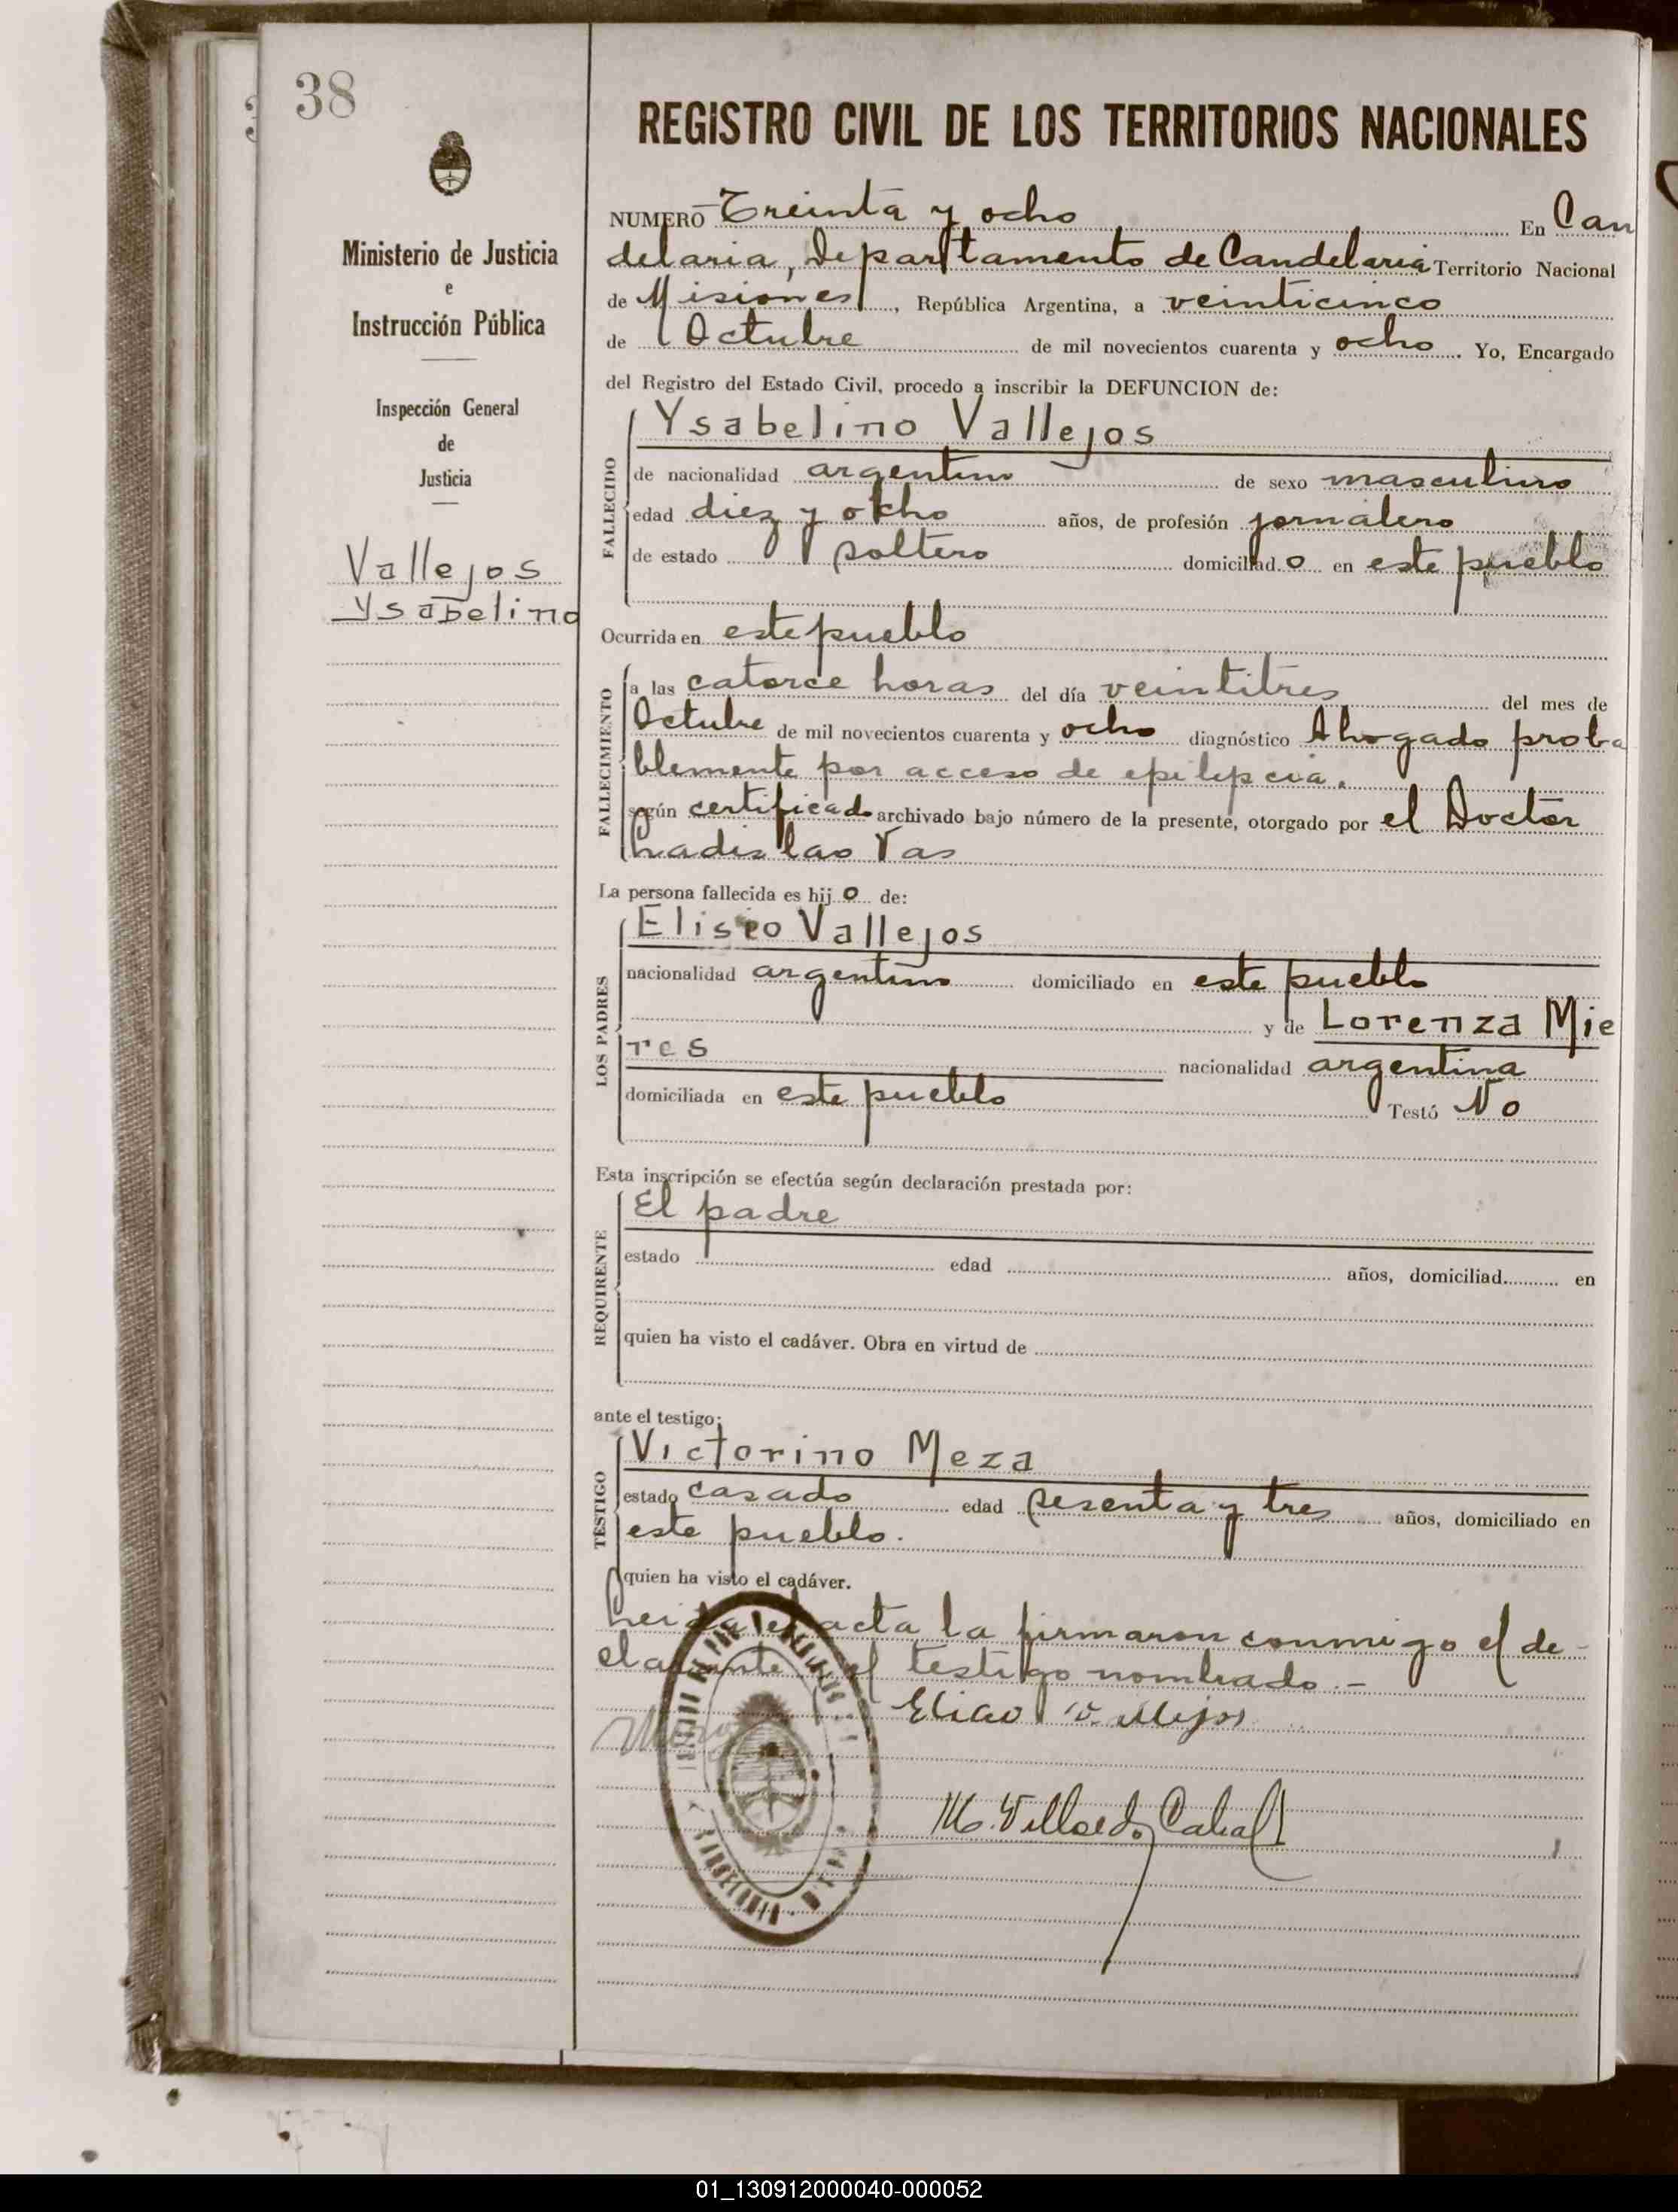 38
Ministerio de Justicia
e
Instrucción Pública
Inspección General
de
Justicia
Vallejos
Ysabelino
REGISTRO CIVIL DE LOS TERRITORIOS NACIONALES
NUMERO Treinta y ocho En Can
delaria, Departamento de Candelaria Territorio Nacional
de Misiones, República Argentina, a veinticinco
de Octubre de mil novecientos cuarenta y ocho. Yo, Encargado
del Registro del Estado Civil, procedo a inscribir la DEFUNCION de:
FALLECIDO
Ysabelino Vallejos
de nacionalidad argentino de sexo masculino
edad diez y ocho años, de profesión jornalero
de estado soltero domiciliad o en este pueblo
Ocurrida en este pueblo
FALLECIMIENTO
a las catorce horas del día veintitres del mes de
Octubre de mil novecientos cuarenta y ocho diagnóstico Ahogado proba
blemente por acceso de epilepcia.
según certificado archivado bajo número de la presente, otorgado por el Doctor
Ladislao Vas
La persona fallecida es hij o de:
LOS PADRES
Eliseo Vallejos
nacionalidad argentino domiciliado en este pueblo
y de Lorenza Mie
res nacionalidad argentina
domiciliada en este pueblo Testó No
Esta inscripción se efectúa según declaración prestada por:
REQUIRENTE
El padre
estado edad años, domiciliad en
quien ha visto el cadáver. Obra en virtud de
ante el testigo:
TESTIGO
Victorino Meza
estado casado edad sesenta y tres años, domiciliado en
este pueblo.
quien ha visto el cadáver.
Leida el acta la firmaron conmigo el de-
clarante y el testigo nombrado.-
01_130912000040-000052